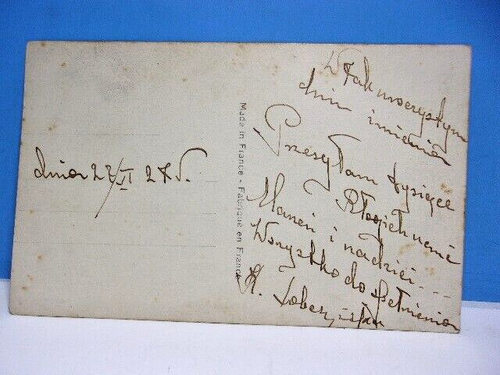 dnia 27/VI 27 r.
Made in France - Fabriqué en France
W tak uroczystym
dniu imienin
Przesyłam tysiące
i nadziei ...
Wszystko do spełnienia
K.